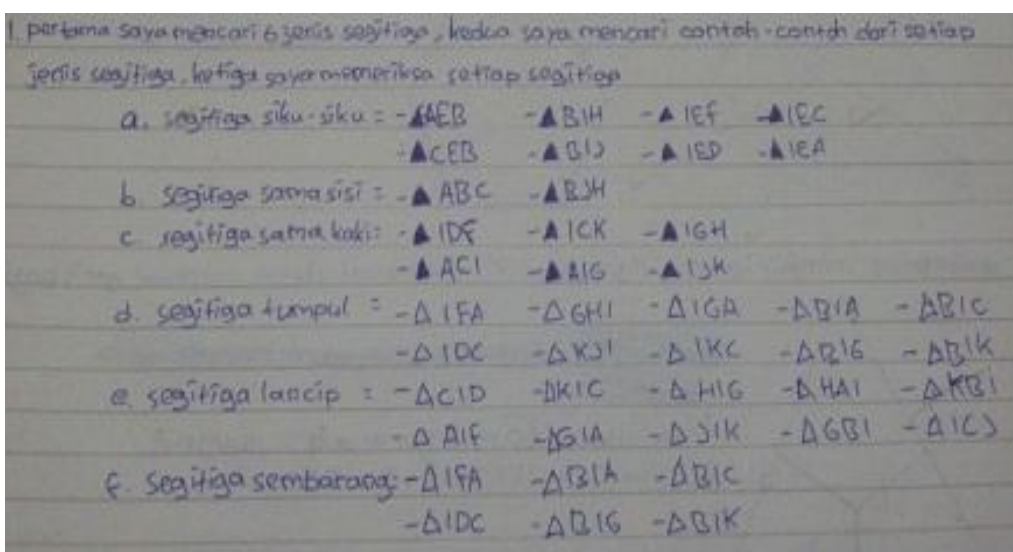 1. pertama saya mencari 6 jenis segitiga, kedua saya mencari contoh-contoh dari setiap
jenis segitiga, ketiga saya memeriksa setiap segitiga
a. segitiga siku-siku = -▲AEB -▲BIH -▲IEF -▲IEC
-▲CEB -▲BIJ -▲IED -▲IEA
b. segitiga sama sisi = -▲ABC -▲BJH
c. segitiga sama kaki: -▲IDF -▲ICK -▲IGH
-▲ACI -▲AIG -▲IJK
d. segitiga tumpul = -△IFA -△GHI -△IGA -△BIA -△BIC
-△IDC -△KJI -△IKC -△BIG -△BIK
e. segitiga lancip = -△CID -△KIC -△HIG -△HAI -△KBI
-△AIF -△GIA -△JIK -△GBI -△ICJ
f. segitiga sembarang: -△IFA -△BIA -△BIC
-△IDC -△BIG -△BIK